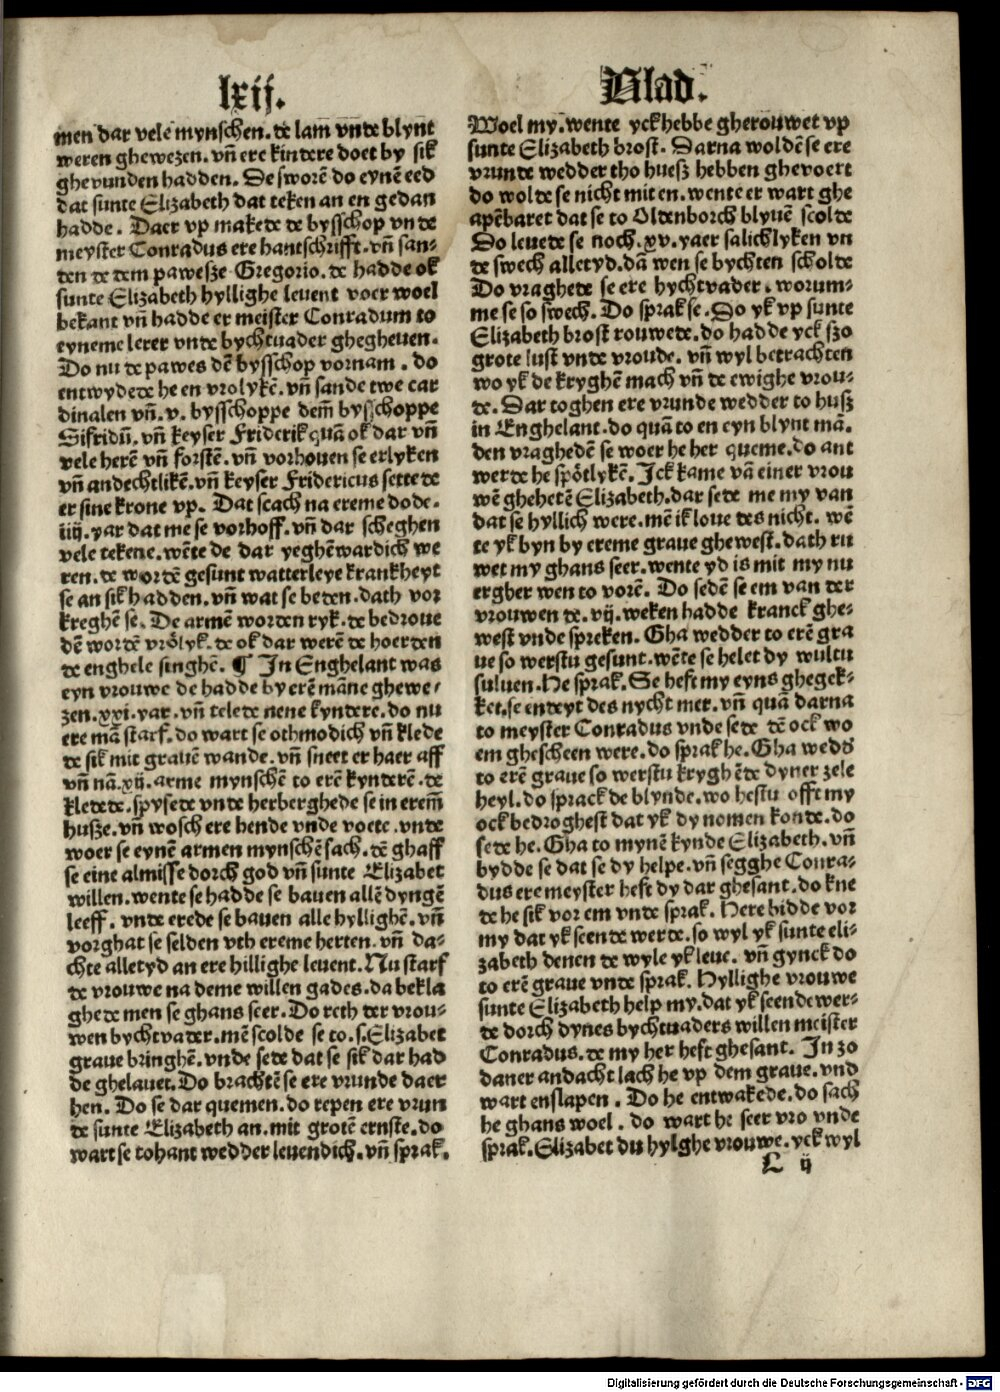 lxij.
Blad.
men dar vele mynschen. de lam vnde blynt
weren ghewezen. vn̄ ere kindere doet by sik
ghevunden hadden. De sworē do eynē eed
dat sunte Elizabeth dat teken an en gedan
hadde. Daer vp makede de bysschop vnde
meyster Conradus ere hantschrifft. vn̄ san-
ten de dem pawesze Gregorio. de hadde ok
sunte Elizabeth hyllighe leuent voer woel
bekant vn̄ hadde er meister Conradum to
eyneme lerer vnde bychtuader ghegheuen.
Do nu de pawes dē bysschop vornam. do
entwydede he en vrolykē. vn̄ sande twe car
dinalen vn̄. v. bysschoppe dem̄ bysschoppe
Sifridū. vn̄ keyser Friderik quā ok dar vn̄
vele herē vn̄ forstē. vn̄ vorhouen se erlyken
vn̄ andechtlikē. vn̄ keyser Fridericus settede
er sine krone vp. Dat scach na ereme dode.
iiij. yar dat me se vorhoff. vn̄ dar scheghen
vele tekene. wēte de dar yeghēwardich we
ren. de wordē gesunt watterleye krankheyt
se an sik hadden. vn̄ wat se beden. dath vor
kreghē se. De armē worden ryk. de bedroue
dē wordē vrölyk. de ok dar werē de hoerden
de enghele singhē. ¶ In Enghelant was
eyn vrouwe de hadde by erē māne ghewe-
zen. xxi. yar. vn̄ telede nene kyndere. do nu
ere mā starf. do wart se othmodich vn̄ klede
de sik mit grauē wande. vn̄ sneet er haer aff
vn̄ nā. xij. arme mynschē to erē kynderē. de
kledede. spysede vnde herberghede se in erem̄
husze. vn̄ wosch ere hende vnde voete. vnde
woer se eynē armen mynschē sach. dē ghaff
se eine almisse dorch god vn̄ sunte Elizabet
willen. wente se hadde se bauen allē dyngē
leeff. vnde erede se bauen alle hyllighē. vn̄
vorghat se selden vth ereme herten. vn̄ da-
chte alletyd an ere hillighe leuent. Nu starf
de vrouwe na deme willen gades. da bekla
ghede men se ghans seer. Do reth der vrou-
wen bychtvader. mē scolde se to. s. Elizabet
graue bringhē. vnde sede dat se sik dar had
de ghelauet. Do brachtē se ere vrunde daer
hen. Do se dar quemen. do repen ere vrun
de sunte Elizabeth an. mit grotē ernste. do
wart se tohant wedder leuendich. vn̄ sprak.
Woel my. wente yck hebbe gherouwet vp
sunte Elizabeth brost. Darna woldē se ere
vrunde wedder tho huesz hebben ghevoert
do wolde se nicht mit en. wente er wart ghe
apēbaret dat se to Oldenborch blyuē scolde
Do leuede se noch. xv. yaer salichlyken vn
de swech alletyd. dā wen se bychten scholde
Do vraghede se ere bychtvader. worum-
me se so swech. Do sprak se. Do yk vp sunte
Elizabeth brost rouwede. do hadde yck szo
grote lust vnde vroude. vn̄ wyl betrachten
wo yk de kryghē mach vn̄ de ewighe vrou-
de. Dar toghen ere vrunde wedder to husz
in Enghelant. do quā to en eyn blynt mā.
den vraghedē se woer he her queme. do ant
werde he spötlykē. Jck kame vā einer vrou
wē ghehetē Elizabeth. dar sede me my van
dat se hyllich were. mē ik loue des nicht. wē
te yk byn by ereme graue ghewest. dath ru
wet my ghans seer. wente yd is mit my nu
ergher wen to vorē. Do sedē se em van der
vrouwen de. vij. weken hadde kranck ghe-
west vnde spreken. Gha wedder to erē gra
ue so werstu gesunt. wēte se helet dy wultu
suluen. He sprak. Se heft my eyns ghegek-
ket. se enteyt des nycht mer. vn̄ quā darna
to meyster Conradus vnde sede dē ock wo
em ghescheen were. do sprak he. Gha wedd'
to erē graue so werstu kryghēde dyner zele
heyl. do sprack de blynde. wo hestu offt my
ock bedroghest dat yk dy nomen konde. do
sede he. Gha to mynē kynde Elizabeth. vn̄
bydde se dat se dy helpe. vn̄ segghe Conra-
dus ere meyster heft dy dar ghesant. do kne
de he sik vor em vnde sprak. Here bidde vor
my dat yk seende werde. so wyl yk sunte eli-
zabeth denen de wyle yk leue. vn̄ gynck do
to erē graue vnde sprak. Hyllighe vrouwe
sunte Elizabeth help my. dat yk seende wer-
de dorch dynes bychtuaders willen meister
Conradus. de my her heft ghesant. In zo
daner andacht lach he vp dem graue. vnd
wart enslapen. Do he entwakede. do sach
he ghans woel. do wart he seer vro vnde
sprak. Elizabet du hylghe vrouwe. yck wyl
L ij
Digitalisierung gefördert durch die Deutsche Forschungsgemeinschaft - DFG